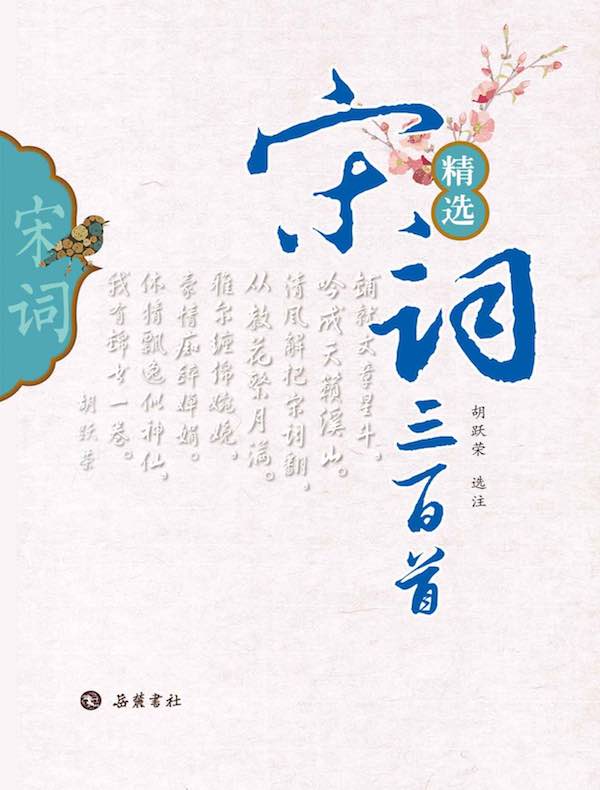 宋词
精选
三百首
胡跃荣 选注
铺就文章星斗。
吟成天籁溪山。
清风解把宋词翻,
从教花繁月满。
雅尔缠绵婉娩,
豪情痴醉婵娟。
体情飘逸似神仙,
我有锦书一卷。
胡跃荣
宋词
岳麓書社